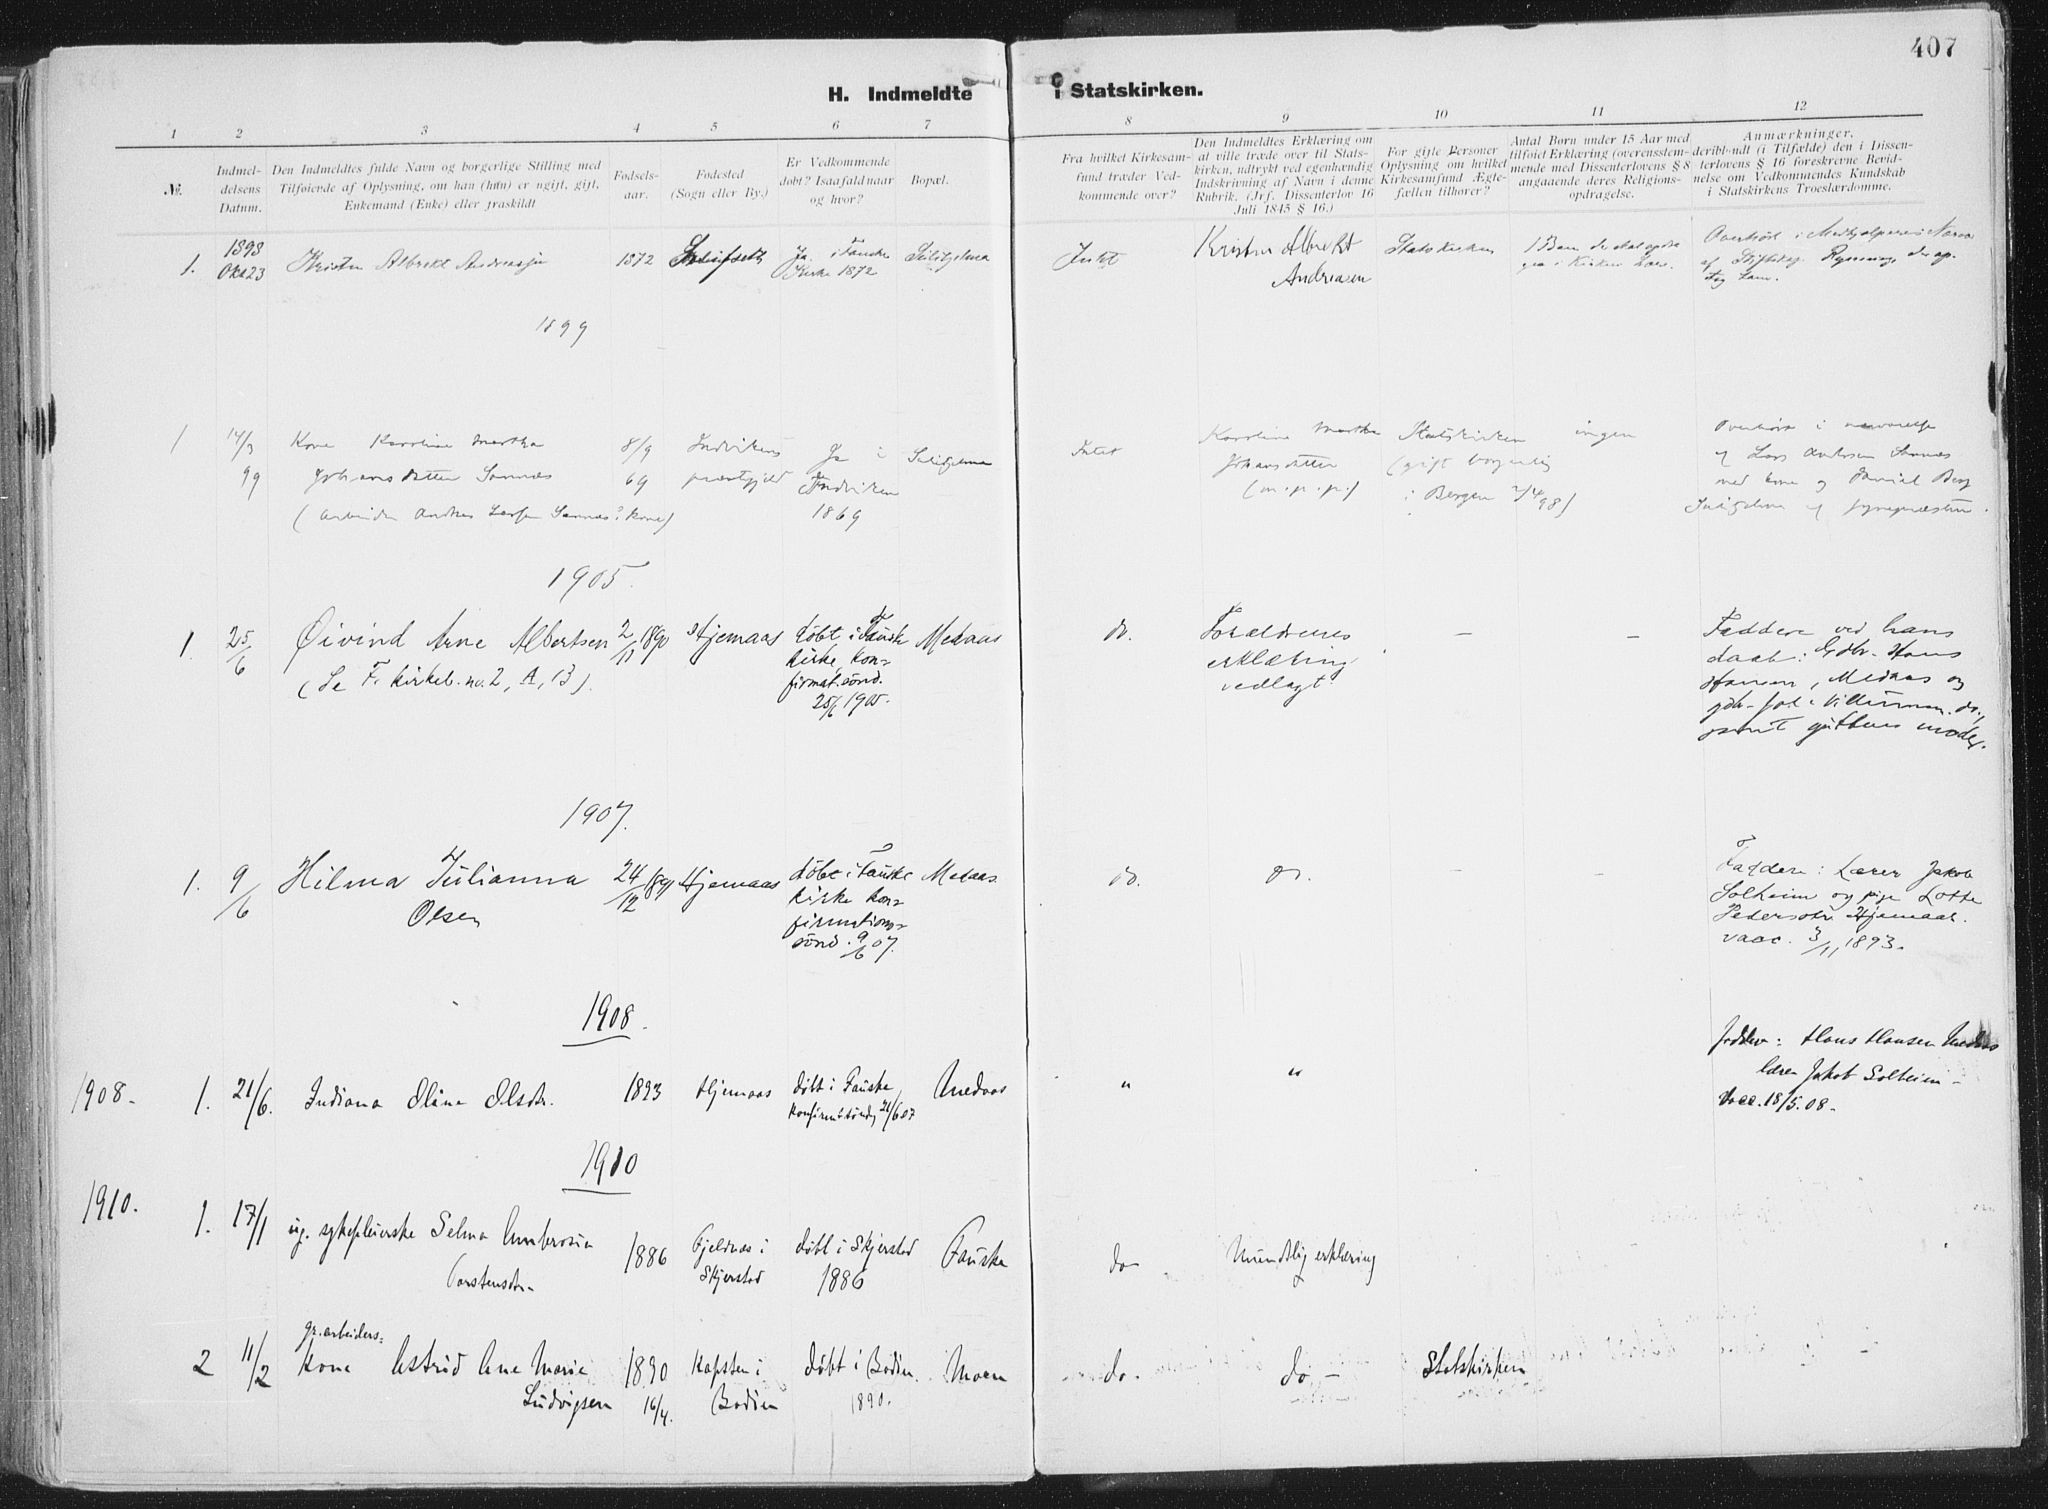 407
H. Indmeldte i Statskirken.
1 2 3 4 5 6 7 8 9 10 11 12
No.
Indmel-
delsens
Datum.
Den Indmeldtes fulde Navn og borgerlige Stilling med
Tilføiende af Oplysning, om han (hun) er ugift, gift,
Enkemand (Enke) eller fraskildt
Fødsels-
aar.
Fødested
(Sogn eller By.)
Er Vedkommende
døbt? Isaafald naar
og hvor?
Bopæl.
Fra hvilket Kirkesam-
fund træder Ved-
kommende over?
Den Indmeldtes Erklæring om
at ville træde over til Stats-
kirken, udtrykt ved egenhændig
Indskrivning af Navn i denne
Rubrik. (Jrf. Dissenterlov 16
Juli 1845 § 16.)
For gifte Personer
Oplysning om hvilket
Kirkesamfund Ægte-
fællen tilhører?
Antal Børn under 15 Aar med
tilføiet Erklæring (overensstem-
mende med Dissenterlovens § 8
angaaende deres Religions-
opdragelse.
Anmærkninger,
deriblandt (i Tilfælde) den i Dissen-
terlovens § 16 foreskrevne Bevid-
nelse om Vedkommendes Kundskab
i Statskirkens Troeslærdomme.
1.
1898
Okt 23
Kristen Albrekt Andreassen
1872
Ja. i Fauske
Kirke 1872
Sulitjelma
Intet
Kristen Albrekt
Andreasen
Statskirken
1 Barn der skal opdra
ges i Kirkens Lære.
1899
1
14/3
99
Kone Karoline Martha
Johansdatter Sannæs
(Arbeider Andreas Larsen Sannæs's kone)
8/9
69
Indvikens
præstegjeld
Ja i
Indviken
1869
Sulitjelma
Intet
Karoline Martha
Johansdatter
(m.p.p.)
Statskirken
(gift borgerlig
i Bergen 2/4 98)
ingen
1905.
1.
25/6
Øivind Arne Albertsen
(Se F. kirkeb. no. 2, A, 13).
2/11 1890
Hjemaas
døbt i Fauske
kirke, kon=
firmat. sønd.
25/6 1905.
Medaas
do.
Forældrenes
erklæring
vedlagt.
-
-
Faddere ved hans
daab: Gdbr. Hans
Hansen, Medaas og
samt guttens moder.
1907.
1.
9/6
Hilma Julianna
Olsen
24/12 1891
Hjemaas
døbt i Fauske
kirke kon=
firmations=
sønd. 9/6 07.
Medaas.
do.
do.
-
-
Faddere: Lærer Jakob
Solheim og pige Lotte
Pedersdtr. Hjemaas.
vacc. 3/11 1893.
1908.
1908-
1.
21/6.
Indiana Oline Olsdtr.
1893
Hjemaas
døbt i Fauske
Konfirm.søndg 21/6 07
Medaas
"
"
Faddere: Hans Hansen Medaas
lærer Jakob Solheim -
Vacc. 18/5.08-
1910
1910.
1.
17/1
ug. sykepleierske Selma Ambrosia
Torstensdtr-
1886
Fjeldnæs i
Skjerstad
døbt i Skjerstad
1886
Fauske
do-
Mundtlig erklæring
2
11/2
gr.arbeiders=
Kone Astrid Ane Marie
Ludvigsen
1890
16/4.
Kapsten i
Bodin
døbt i Bodin.
1890.
Moen
do.
do -
Statskirken